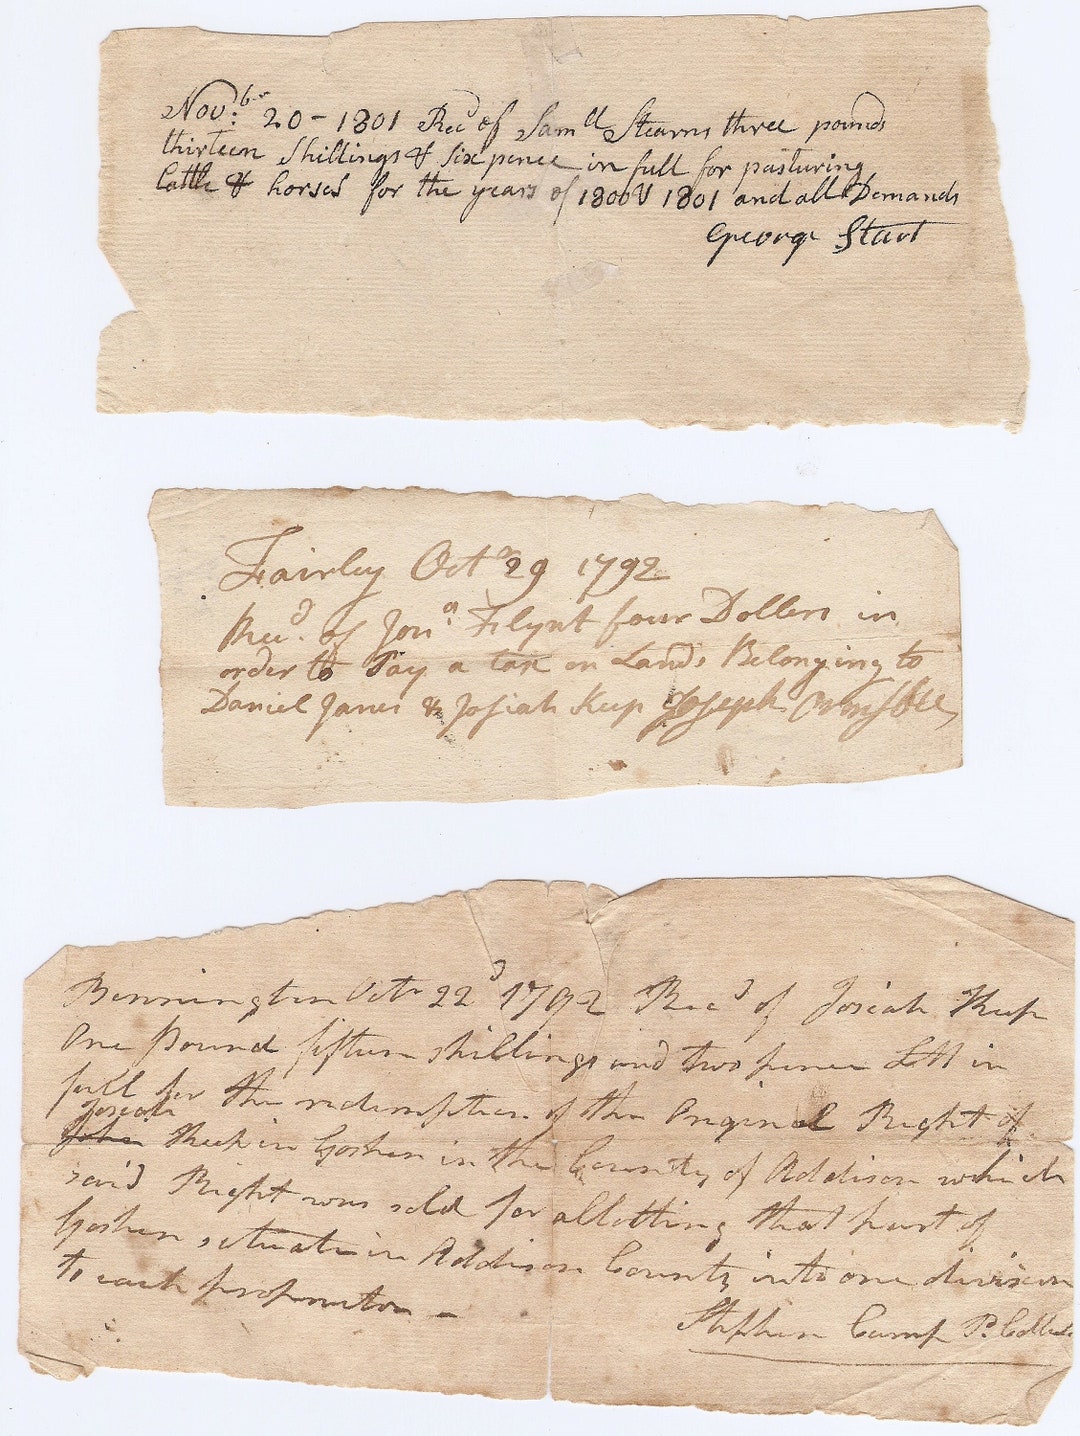 Nov:br 20 - 1801 Recd of Samll Stearns three pounds
thirteen Shillings & six pence in full for pasturing
Cattle & horses for the years of 1800 & 1801 and all Demands
George Start
Fairley Octr 29 1792
Recd. of Jona Flynt four Dollers in
order to Pay a tax on Lands Belonging to
Daniel Janes & Josiah Keep Joseph
Bennington Octr 22d 1792 Recd of Josiah Keep
One Pound fifteen shillings and two pence LM in
full for the redemption of the Original Right of
Josiah
John Keep in Goshen in the County of Addison which
said Right was sold for allotting that part of
Goshen situate in Addison County into one division
to each proprietor -
Stephen Camp P. Collr